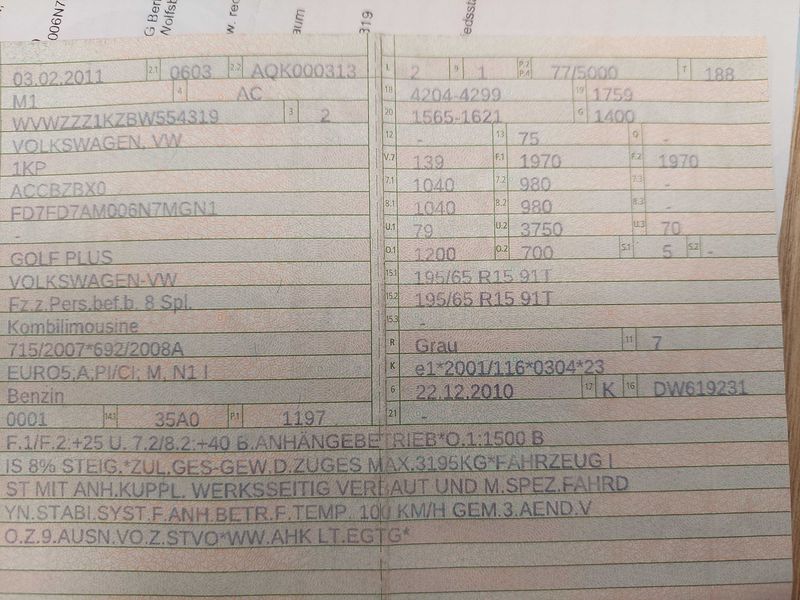 006N7
G Ber
Wolfsb
w. rec
aum
319
edsst
03.02.2011 2.1 0603 2.2 AQK000313 L 2 9 1 P.2 P.4 77/5000 T 188
M1 4 AC 18 4204-4299 19 1759
WVWZZZ1KZBW554319 3 2 20 1565-1621 G 1400
VOLKSWAGEN, VW 12 - 13 75 Q -
1KP V.7 139 F.1 1970 F.2 1970
ACCBZBX0 7.1 1040 7.2 980 7.3 -
FD7FD7AM006N7MGN1 8.1 1040 8.2 980 8.3 -
- U.1 79 U.2 3750 U.3 70
GOLF PLUS O.1 1200 O.2 700 S.1 5 S.2 -
VOLKSWAGEN-VW 15.1 195/65 R15 91T
Fz.z.Pers.bef.b. 8 Spl. 15.2 195/65 R15 91T
Kombilimousine 15.3 -
715/2007*692/2008A R Grau 11 7
EURO5,A,PI/CI; M, N1 I K e1*2001/116*0304*23
Benzin 6 22.12.2010 17 K 16 DW619231
0001 14.1 35A0 P.1 1197 21 -
F.1/F.2:+25 U. 7.2/8.2:+40 B.ANHÄNGEBETRIEB*O.1:1500 B
IS 8% STEIG.*ZUL.GES-GEW.D.ZUGES MAX.3195KG*FAHRZEUG I
ST MIT ANH.KUPPL. WERKSSEITIG VERBAUT UND M.SPEZ.FAHRD
YN.STABI.SYST.F.ANH.BETR.F.TEMP. 100 KM/H GEM.3.AEND.V
O.Z.9.AUSN.VO.Z.STVO*WW.AHK LT.EGTG*